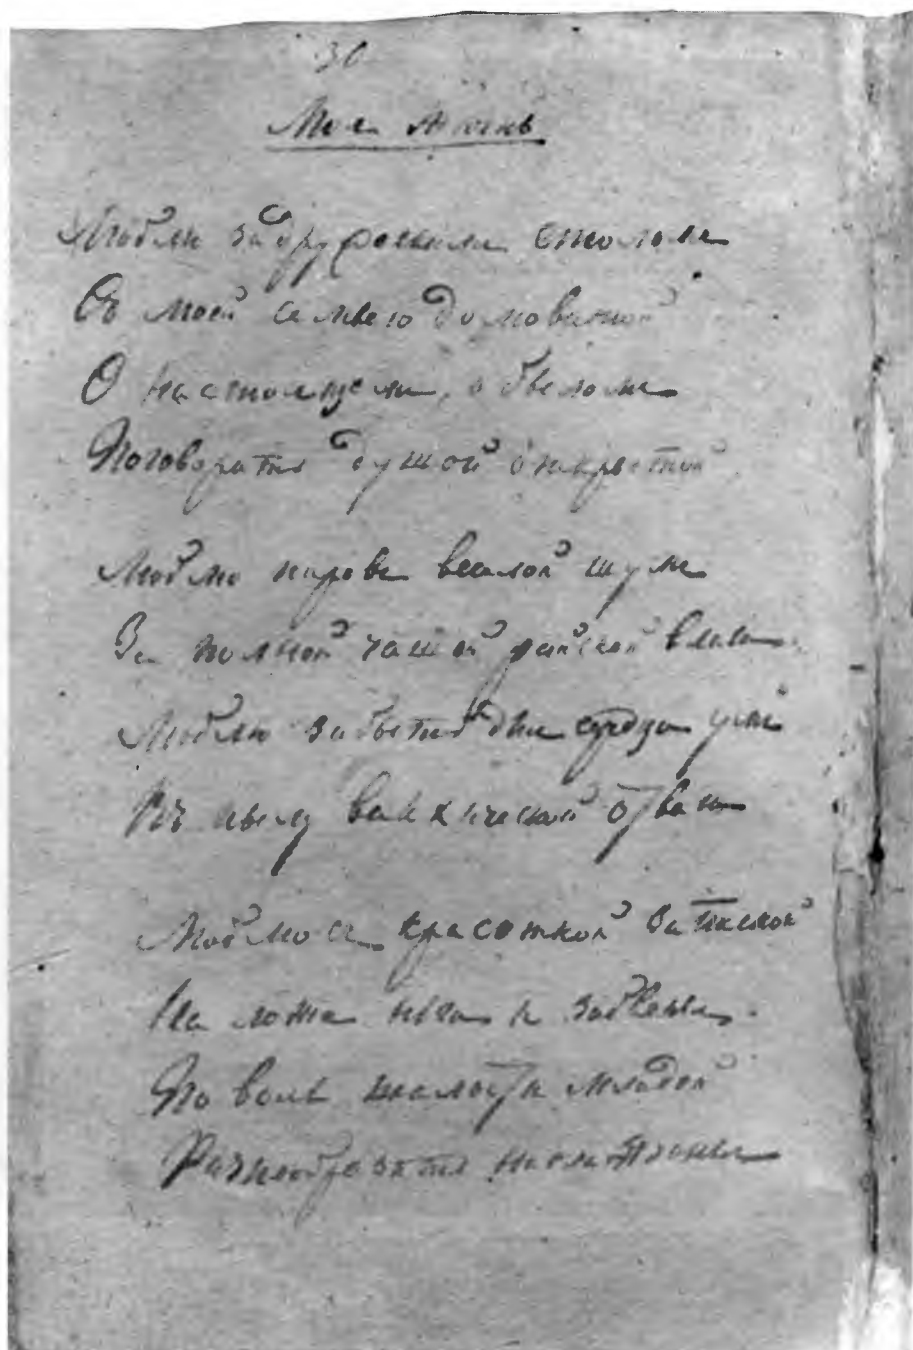 30
Моя жизнь
Люблю за дружескимъ столомъ
Съ моей семьею домовитой
О настоящемъ, о быломъ
Поговорить душой открытой
Люблю пировъ веселой шумъ
За полной чашей райской влаги.
Люблю забыть для сердца умъ
Въ пылу вакхической отваги
Люблю съ красоткой записной
На ложе нѣги и забвенья.
По волѣ шалости младой
Разнообразить наслажденья